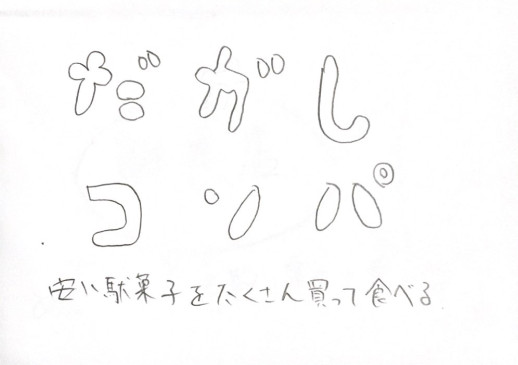 だがし
コンパ
安い駄菓子をたくさん買って食べる